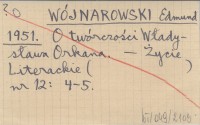 WÓJNAROWSKI Edmund
1951. O twórczości Włady-
sława Orkana. – Życie
Literackie (
nr 12: 4-5.